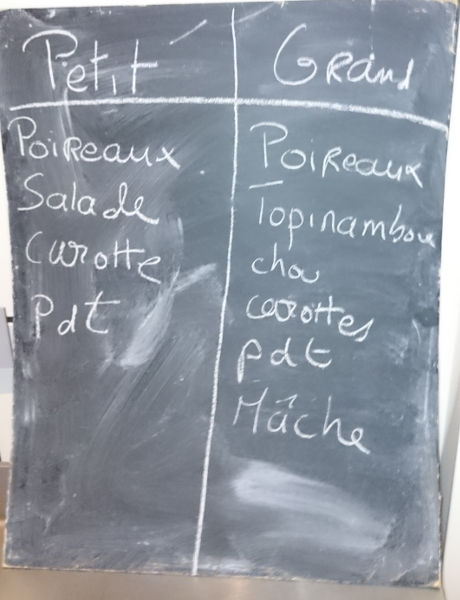 Petit
Poireaux
Salade
Carotte
Pdt
Grand
Poireaux
Topinambou
chou
carottes
pdt
Mâche